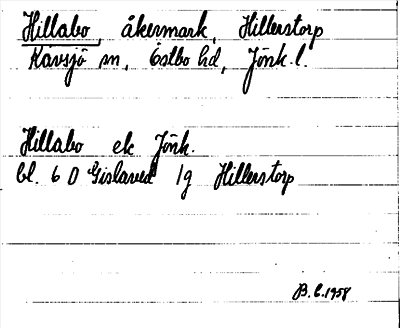 Hillabo, åkermark, Hillerstorp
Kävsjö sn, Östbo hd, Jönk. l.
Hillabo ek Jönk.
bl. 6 D Gislaved 1g Hillerstorp
B.E. 1958